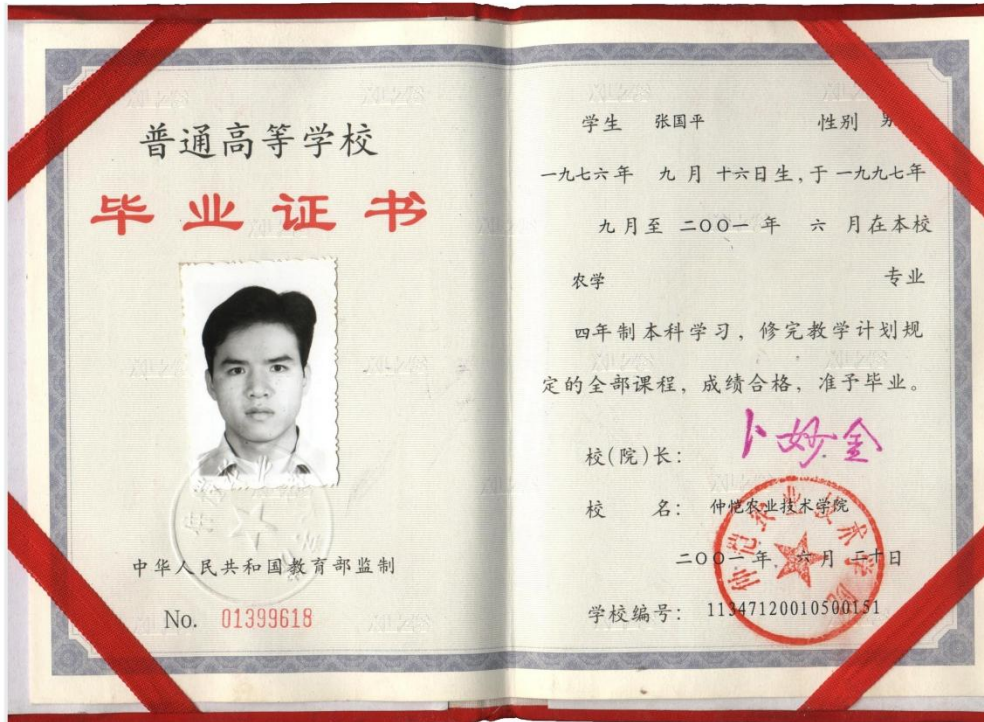 普通高等学校
毕业证书
中华人民共和国教育部监制
No. 01399618
学生 张国平 性别 男
一九七六年 九月十六日生，于一九九七年
九月至二〇〇一年 六月在本校
农学 专业
四年制本科学习，修完教学计划规
定的全部课程，成绩合格，准予毕业。
校(院)长： 卜妙金
校 名： 仲恺农业技术学院
二〇〇一年 六月 二十日
学校编号： 113471200105001​51
仲恺农业技术学院